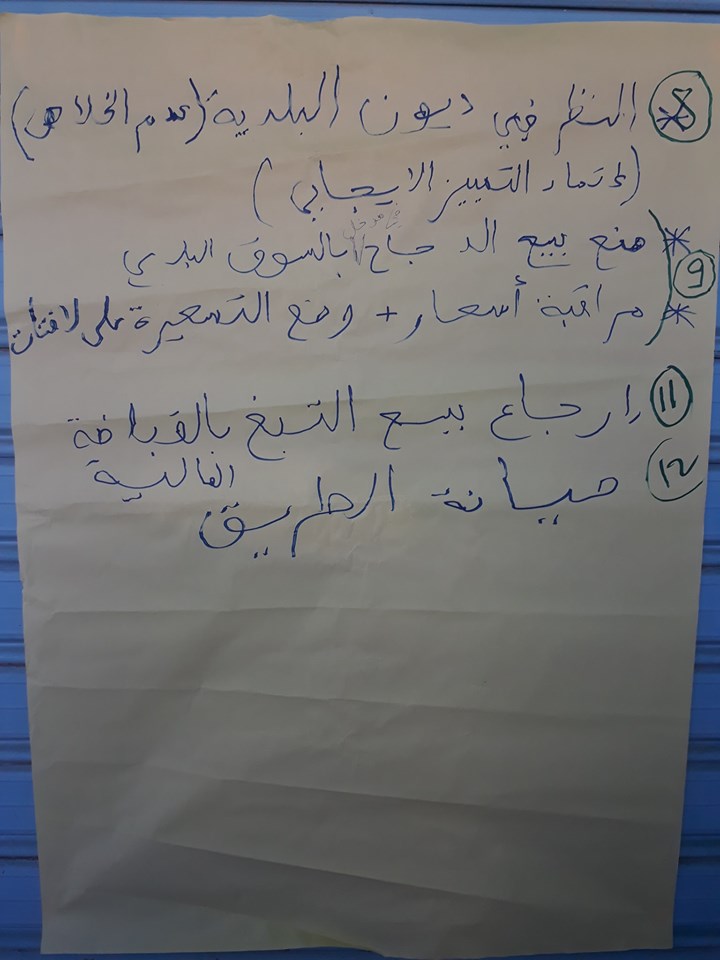 8 * النظر في ديون البلدية (عدم الخلاص)
(إعتماد التمييز الايجابي)
* منع بيع الدجاج بالسوق البلدي
9
* مراقبة أسعار + وضع التسعيرة على لافتات
11 إرجاع بيع التبغ بالقباضة
المالية
12 صيانة الطريق